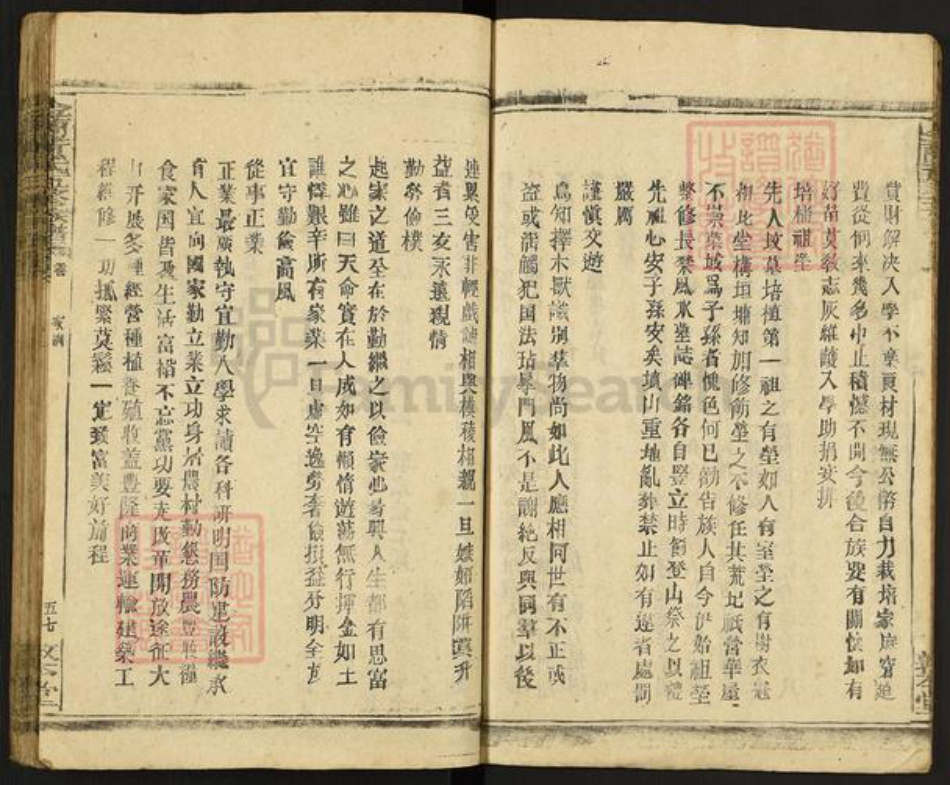 賞財解决入學不棄貢材現無公幣自力栽培家庭窮迫
費從何來幾多中止積憾不開今後合族要有關懷如有
好苗莫教志灰維護入學助捐安排
培植祖塋
先人坟墓培植第一祖之有塋如人有室塋之有樹衣冠
相此坐構垣墉知加修飾塋之不修任其荒圮祇營華屋
不崇業城爲子孫者愧色何已勸告族人自今伊始祖塋
整修長禁風水墓誌碑銘各自豎立時節登山祭之以禮
先祖心安子孫安矣墳山重地亂葬禁止如有違者處罰
嚴厲
謹慎交遊
鳥知擇木獸識别羣物尚如此人應相同世有不正或
盜或濶觸犯国法玷辱門風不是謝絶反與同羣以後
連累災害非輕戲謔相與模稜相親一旦嫉妬陷阱冀升
益者三友永遠親情
勤勞儉樸
起家之道至在於勤繼之以儉家必易興人生都有思富
之心雖曰天命實在人成如有懶惰遊蕩無行揮金如土
誰憚艱辛所有家業一旦虚空逸勞奢儉損益分明全宜
宜守勤儉高风
從事正業
正業最廣執守宜勤入學求讀各科研明国防建設繼承
有人宜向國家勤立業立功身居農村勤懇務農豐收糧
食家国皆受生活富裕不忘黨功要尤改革開放途征大
開展多種經營種植養殖收益豐隆商業運輸建築工
程維修一切抓緊莫鬆一定致富美好前程
家訓
五七